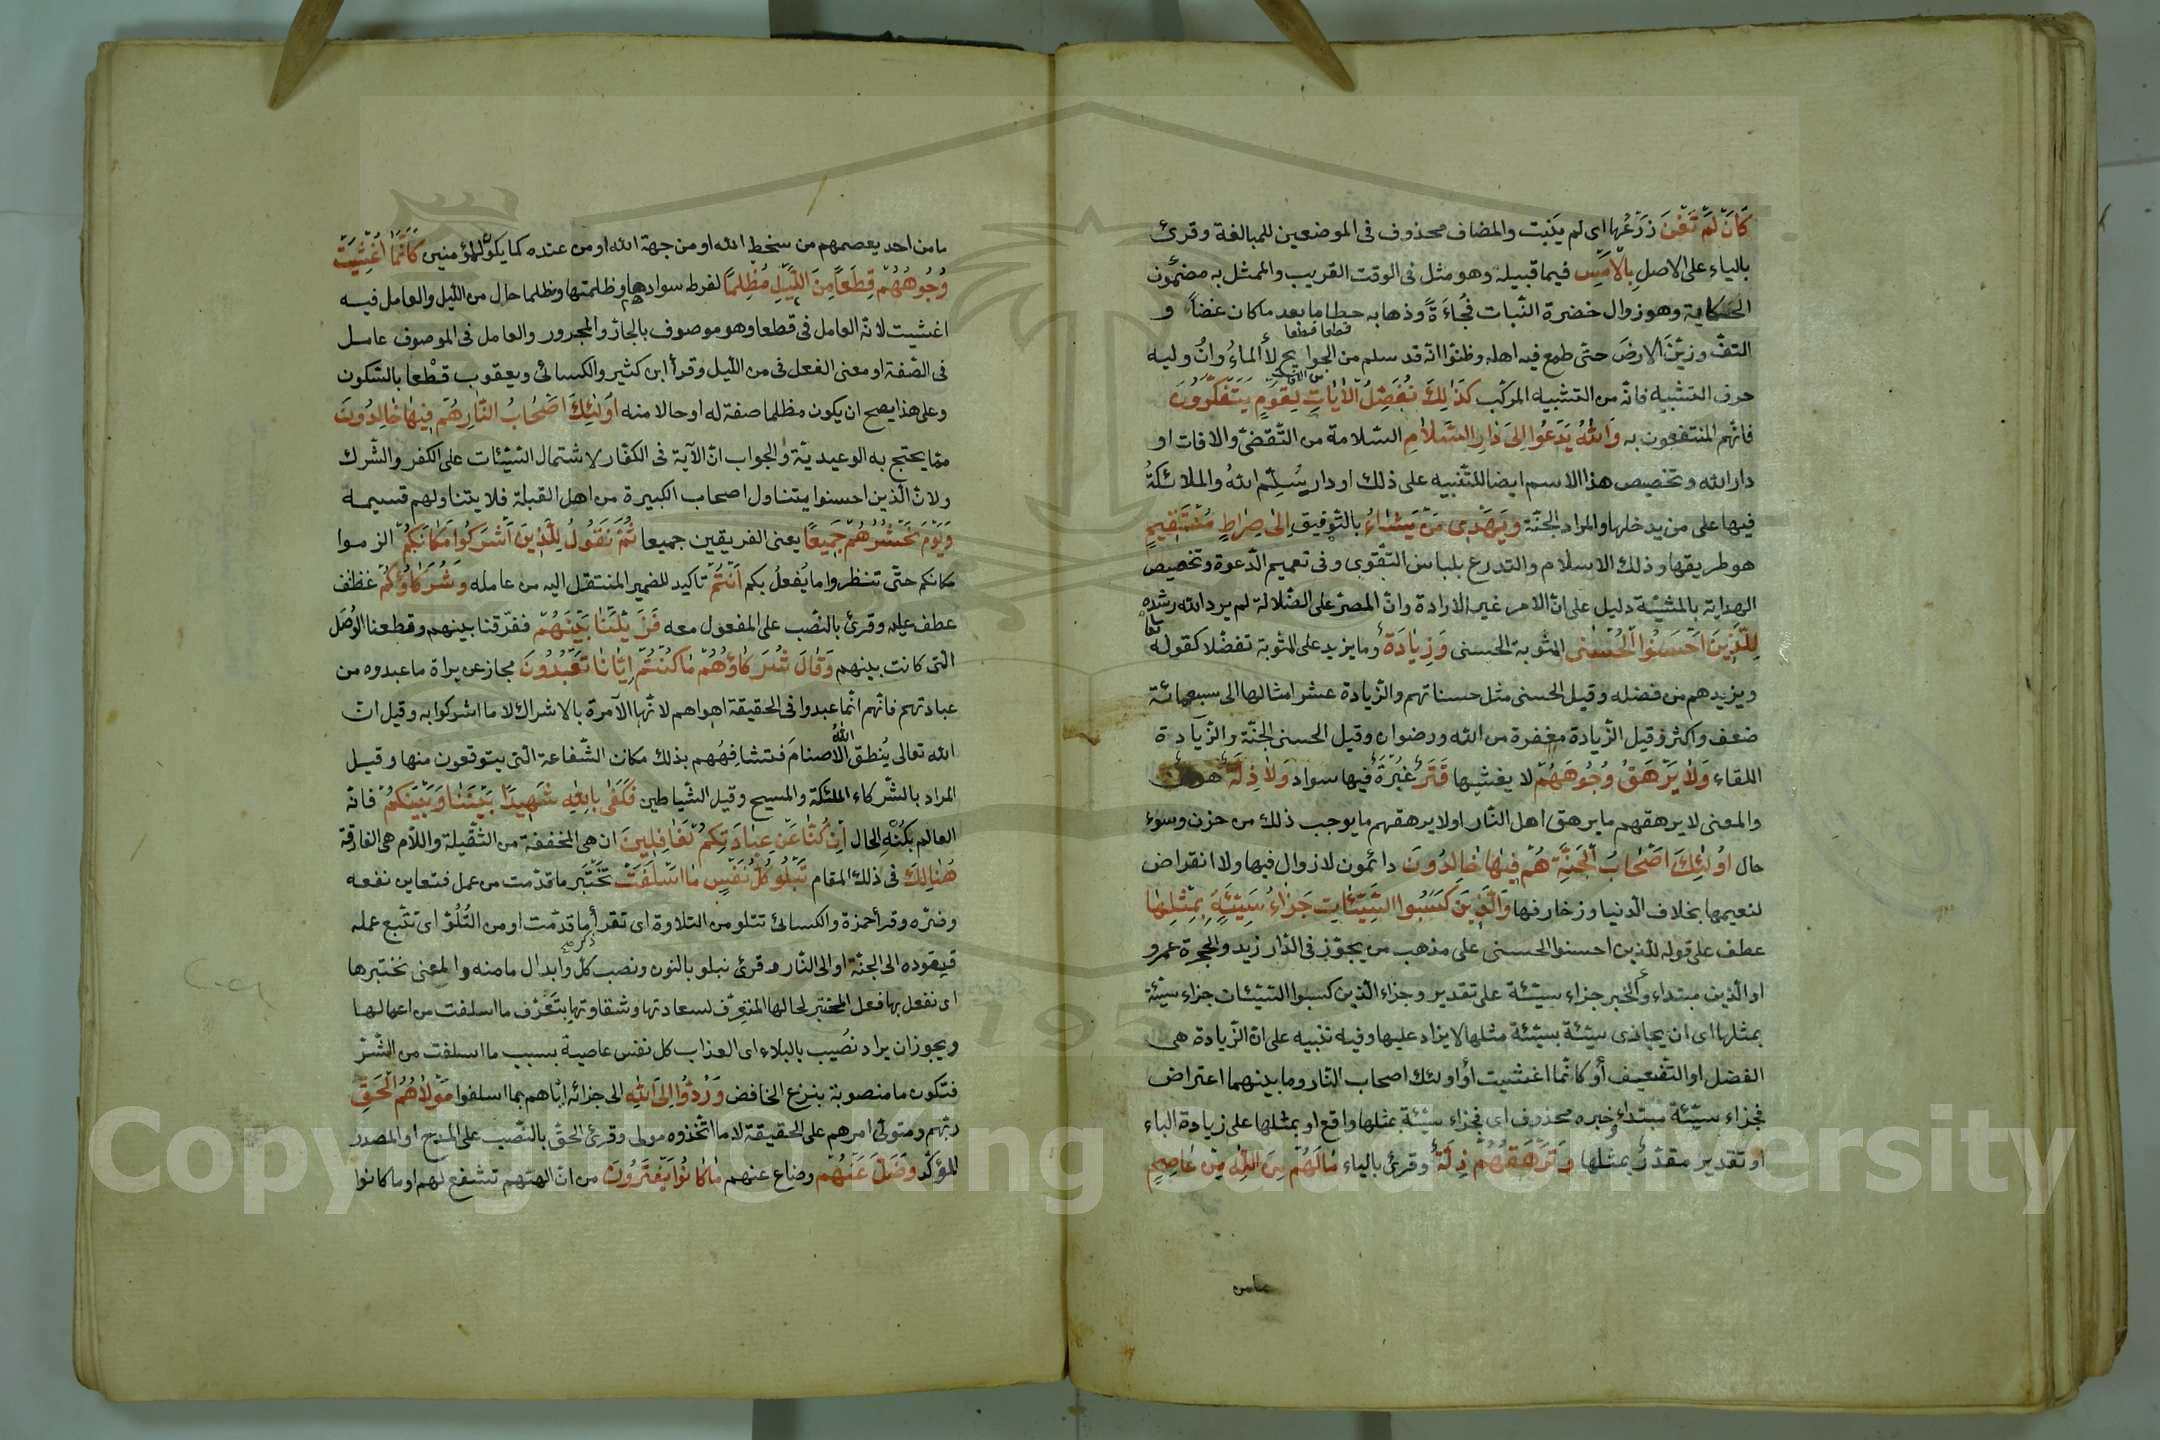 كَاَنْ لَمْ تَغْنَ زَرْعُها اى لم ينبت والمضاف محذوف فى الموضعين للمبالغة وقرئ
بالياء على الاصل بِالْاَمْسِ فيما قبيله وهو مثل فى الوقت القريب والممثل به مضمون
الحكاية وهو زوال خضرة النبات فُجاءَةً وذهابه حطاما بعد ما كان غضّاً و
التفّ وزيّن الارضَ حتى طمع فيه اهله وظنّوا انّه قد سلم من الجوايح لا الماءُ وانْ وليه
حرف التشبيه فانّه من التشبيه المركّب كَذٰلِكَ نُفَصِّلُ الْاٰيَاتِ لِقَوْمٍ يَتَفَكَّرُونَ
فانّهم المنتفعون به وَاللّٰهُ يَدْعُوا اِلىَ دَارِ السَّلَامِ السلامة من التّقضّى والافات او
دار الله وتخصيص هذا الاسم ايضا للتّنبيه على ذلك او دار يُسَلِّم اللهُ والملائكةُ
فيها على من يدخلها والمراد الجنّة وَيَهْدِى مَنْ يَشَاءُ بالتوفيق اِلىٰ صِرَاطٍ مُسْتَقِيمٍ
هو طريقها وذلك الاسلام والتدرع بلباس التقوى وفى تعميم الدّعوة وتخصيص
الهداية بالمشيّة دليل على انّ الامر غير الارادة وانّ المصرّ على الضّلالة لم يرد الله رشده
لِلَّذِينَ اَحْسَنُوا الْحُسْنىٰ المثوبة الحسنى وَزِيَادَةٌ وما يزيد على المثوبة تفضّلا كقوله تعا
ويزيدهم من فضله وقيل الحسنى مثل حسناتهم والزّيادة عشر امثالها الى سبعمائة
ضعف واكثر وقيل الزّيادة مغفرة من الله ورضوان وقيل الحسنى الجنّة والزّيادة
اللقاء وَلَا يَرْهَقُ وُجُوهَهُمْ لا يغشيها قَتَرٌ غُبْرَةٌ فيها سواد وَلَا ذِلَّةٌ هوان
والمعنى لا يرهقهم ما يرهق اهل النّار او لا يرهقهم ما يوجب ذلك من حزن وسوء
حال اُولٰئِكَ اَصْحَابُ الْجَنَّةِ هُمْ فِيهَا خَالِدُونَ دائمون لا زوال فيها ولا انقراض
لنعيمها بخلاف الدنيا وزخارفها وَالَّذِينَ كَسَبُوا السَّيِّئَاتِ جَزَاءُ سَيِّئَةٍ بِمِثْلِهَا
عطف على قوله للّذين احسنوا الحسنى على مذهب من يجوّز فى الدّار زيد والحجرة عمرو
او الّذين مبتداء والخبر جزاء سيّئة على تقدير وجزاء الّذين كسبوا السّيّئات جزاء سيئة
بمثلها اى ان يجازى سيّئة بسيّئة مثلها لا يزاد عليها وفيه تنبيه على انّ الزّيادة هى
الفضل او التضعيف أو كانّما اغشيت أو اولئك اصحاب النّار وما بينهما اعتراض
فجزاء سيّئة مبتداء وخبره محذوف اى فجزاء سيّئة بمثلها واقع او بمثلها على زيادة الباء
او تقدير مقدّر بمثلها وَتَرْهَقُهُمْ ذِلَّةٌ وقرئ بالياء مَا لَهُمْ مِنَ اللّٰهِ مِنْ عَاصِمٍ
ما من
ما من احد يعصمهم من سخط الله او من جهة الله او من عنده كما يكون للمؤمنين كَاَنَّمَا اُغْشِيَتْ
وُجُوهُهُمْ قِطَعاً مِنَ الَّيْلِ مُظْلِماً لفرط سوادها وظلمتها ومظلما حال من اللّيل والعامل فيه
اغشيت لانّه العامل فى قطعا وهو موصوف بالجارّ والمجرور والعامل فى الموصوف عامل
فى الصّفة او معنى الفعل فى من اللّيل وقرأ ابن كثير والكسائى ويعقوب قطْعا بالسّكون
وعلى هذا يصح ان يكون مظلما صفة له او حالا منه اُولٰئِكَ اَصْحَابُ النَّارِ هُمْ فِيهَا خَالِدُونَ
ممّا يحتج به الوعيديّة والجواب انّ الآية فى الكفّار لاشتمال السّيّئات على الكفر والشّرك
ولانّ الّذين احسنوا يتناول اصحاب الكبيرة من اهل القبلة فلا يتناولهم قسيمه
وَيَوْمَ نَحْشُرُهُمْ جَمِيعًا يعنى الفريقين جميعا ثُمَّ نَقُولُ لِلَّذِينَ اَشْرَكُوا مَكَانَكُمْ الزموا
مكانكم حتّى تنظروا ما يُفعلُ بكم اَنْتُمْ تاكيد للضمير المنتقل اليه من عامله وَشُرَكَاؤُكُمْ عطف
عطف عليه وقرئ بالنّصب على المفعول معه فَزَيَّلْنَا بَيْنَهُمْ ففرّقنا بينهم وقطعنا الوُصَل
الّتى كانت بينهم وَقَالَ شُرَكَاؤُهُمْ مَا كُنْتُمْ اِيَّانَا تَعْبُدُونَ مجاز عن براة ما عبدوه من
عبادتهم فانّهم انّما عبدوا فى الحقيقة اهواهم لانّها الآمرة بالاشراك لا ما اشركوا به وقيل انّ
الله تعالى يُنطق الله الاصنامَ فتشافِهُهم بذلك مكان الشّفاعة الّتى يتوقعون منها وقيل
المراد بالشّركاء الملئكة والمسيح وقيل الشّياطين فَكَفىٰ بِاللّٰهِ شَهِيدًا بَيْنَنَا وَبَيْنَكُمْ فانّه
العالم بكُنْهِ الحال اِنْ كُنَّا عَنْ عِبَادَتِكُمْ لَغَافِلِينَ ان هى المخففة من الثقيلة واللّام هى الفارقة
هُنَالِكَ فى ذلك المقام تَبْلُو كُلُّ نَفْسٍ مَا اَسْلَفَتْ تختبر ما قدّمت من عمل فتعاين نفعه
وضرّه وقرأ حمزة والكسائى تتلو من التلاوة اى تقرأ ما قدّمت او من التُّلُوّ اى تتّبع عمله
فيقوده الى الجنّة او الى النّار وقرئ نبلو بالنون ونصب كلّ وابدال ما منه والمعنى نختبرها
اى نفعل بها فعل المختبر لحالها المتعرّف لسعادتها وشقاوتها بتعرّف ما اسلفت من اعمالها
ويجوز ان يراد نُصيب بالبلاء اى العذاب كل نفس عاصية بسبب ما اسلفت من الشّرّ
فتكون ما منصوبة بنزع الخافض وَرُدُّوا اِلَى اللّٰهِ الى جزائه ايّاهم بما اسلفوا مَوْلٰهُمُ الْحَقِّ
ربّهم ومتولّى امرهم على الحقيقة لا ما اتّخذوه مولى وقرئ الحقَّ بالنّصب على المدح او المصدر
المؤكّد وَضَلَّ عَنْهُمْ وضاع عنهم مَا كَانُوا يَفْتَرُونَ من انّ الهتهم تشفع لهم او ما كانوا
Copyright © King Saud University